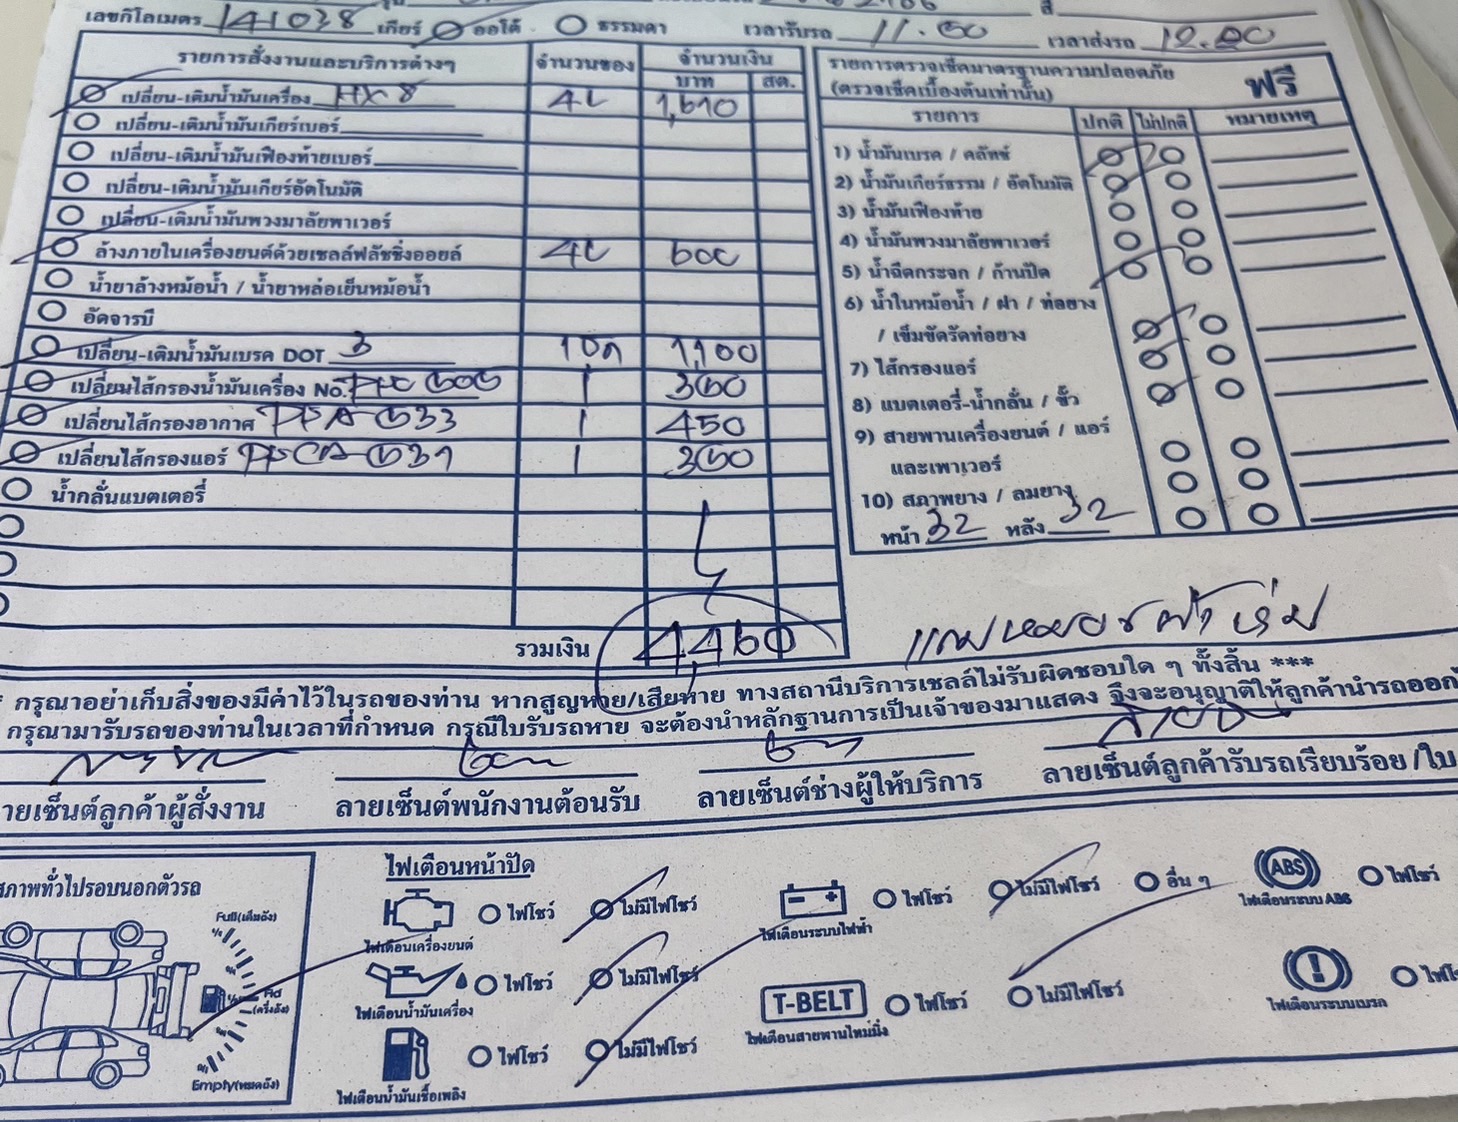 เลขกิโลเมตร 141038 เกียร์ ออโต้ ธรรมดา เวลารับรถ 11.00 เวลาส่งรถ 12.00
รายการสั่งงานและบริการต่างๆ จำนวนของ จำนวนเงิน
บาท สต.
เปลี่ยน-เติมน้ำมันเครื่อง HX 8 4L 1,610
เปลี่ยน-เติมน้ำมันเกียร์เบอร์
เปลี่ยน-เติมน้ำมันเฟืองท้ายเบอร์
เปลี่ยน-เติมน้ำมันเกียร์อัตโนมัติ
เปลี่ยน-เติมน้ำมันพวงมาลัยพาเวอร์
ล้างภายในเครื่องยนต์ด้วยเชลล์ฟลัชชิ่งออยล์ 4L 600
น้ำยาล้างหม้อน้ำ / น้ำยาหล่อเย็นหม้อน้ำ
อัดจารบี
เปลี่ยน-เติมน้ำมันเบรค DOT 3 1,100
เปลี่ยนไส้กรองน้ำมันเครื่อง No. 1 350
เปลี่ยนไส้กรองอากาศ 1 450
เปลี่ยนไส้กรองแอร์ 1 350
น้ำกลั่นแบตเตอรี่
รวมเงิน 4,460
รายการตรวจเช็คมาตรฐานความปลอดภัย
(ตรวจเช็คเบื้องต้นเท่านั้น) ฟรี
รายการ ปกติ ไม่ปกติ หมายเหตุ
1) น้ำมันเบรค / คลัทช์
2) น้ำมันเกียร์ธรรม / อัตโนมัติ
3) น้ำมันเฟืองท้าย
4) น้ำมันพวงมาลัยพาเวอร์
5) น้ำฉีดกระจก / ก้านปัด
6) น้ำในหม้อน้ำ / ฝา / ท่อยาง
/ เข็มขัดรัดท่อยาง
7) ไส้กรองแอร์
8) แบตเตอรี่-น้ำกลั่น / ขั้ว
9) สายพานเครื่องยนต์ / แอร์
และเพาเวอร์
10) สภาพยาง / ลมยาง
หน้า 32 หลัง 32
กรุณาอย่าเก็บสิ่งของมีค่าไว้ในรถของท่าน หากสูญหาย/เสียหาย ทางสถานีบริการเชลล์ไม่รับผิดชอบใด ๆ ทั้งสิ้น ***
กรุณามารับรถของท่านในเวลาที่กำหนด กรณีใบรับรถหาย จะต้องนำหลักฐานการเป็นเจ้าของมาแสดง จึงจะอนุญาติให้ลูกค้านำรถออก
ลายเซ็นต์ลูกค้าผู้สั่งงาน ลายเซ็นต์พนักงานต้อนรับ ลายเซ็นต์ช่างผู้ให้บริการ ลายเซ็นต์ลูกค้ารับรถเรียบร้อย/ใบ
สภาพทั่วไปรอบนอกตัวรถ
Full(เต็มถัง)
(ครึ่งถัง)
Empty(หมดถัง)
ไฟเตือนหน้าปัด
ไฟโชว์ ไม่มีไฟโชว์
ไฟเตือนเครื่องยนต์
ไฟโชว์ ไม่มีไฟโชว์
ไฟเตือนน้ำมันเครื่อง
ไฟโชว์ ไม่มีไฟโชว์
ไฟเตือนน้ำมันเชื้อเพลิง
ไฟโชว์ ไม่มีไฟโชว์ อื่น ๆ
ไฟเตือนระบบไฟฟ้า
T-BELT ไฟโชว์ ไม่มีไฟโชว์
ไฟเตือนสายพานไทม์มิ่ง
ABS ไฟโชว์
ไฟเตือนระบบ ABS
ไฟเตือนระบบเบรก